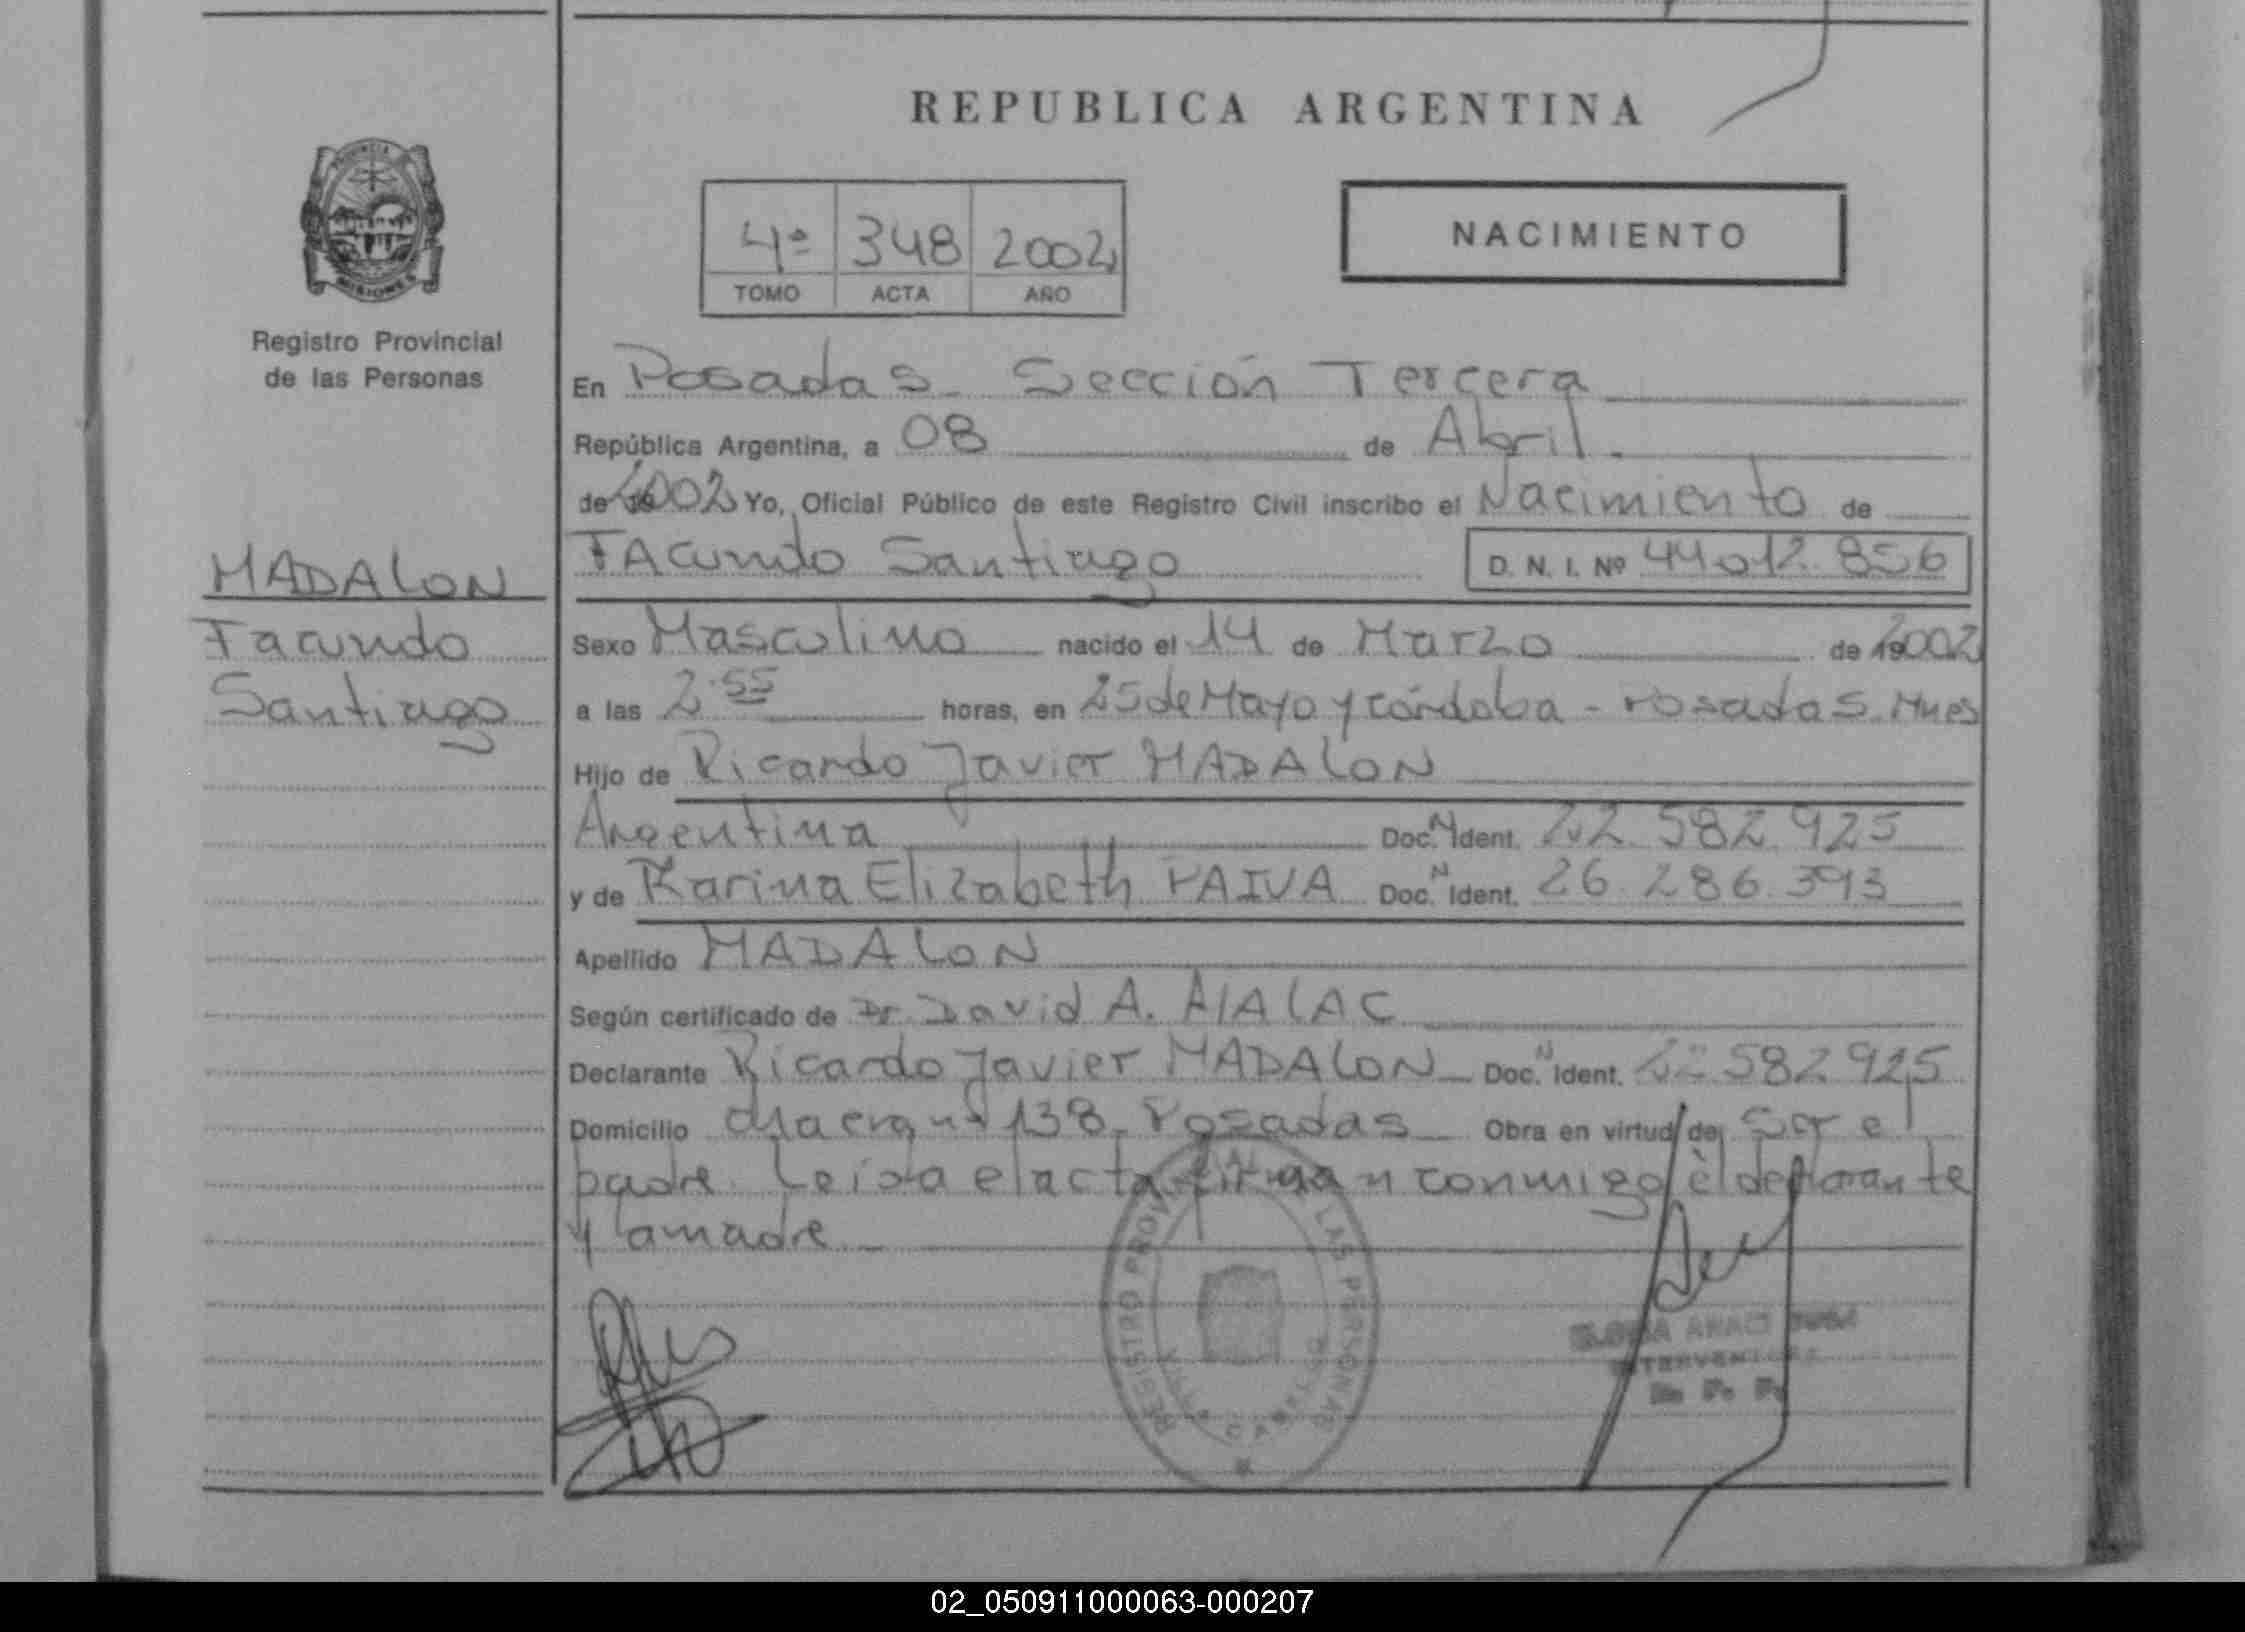 REPUBLICA ARGENTINA
PROVINCIA
MISIONES
Registro Provincial
de las Personas
4º 348 2002
TOMO ACTA AÑO
NACIMIENTO
En Posadas - Sección Tercera
República Argentina, a 08 de Abril
de 2002 Yo, Oficial Público de este Registro Civil inscribo el Nacimiento de
MADALON
Facundo
Santiago
FAcundo Santiago D. N. I. Nº 44.012.856
Sexo Masculino nacido el 14 de Marzo de 2002
a las 2.55 horas, en 25 de Mayo y Córdoba - Posadas. Mnes
Hijo de Ricardo Javier MADALON
Argentina Doc. N Ident. 22.582.925
y de Karina Elizabeth PAIVA Doc. N Ident. 26.286.393
Apellido MADALON
Según certificado de Dr. David A.
Declarante Ricardo Javier MADALON Doc. N Ident. 22 582 925
Domicilio 138 - Posadas Obra en virtud de Ser el
padre. Leida el acta firman conmigo èl declarante
y la madre
REGISTRO PROVINCIAL DE LAS PERSONAS
VILLA CABELLO
INTERVENTORA
R. P. P.
02_050911000063-000207